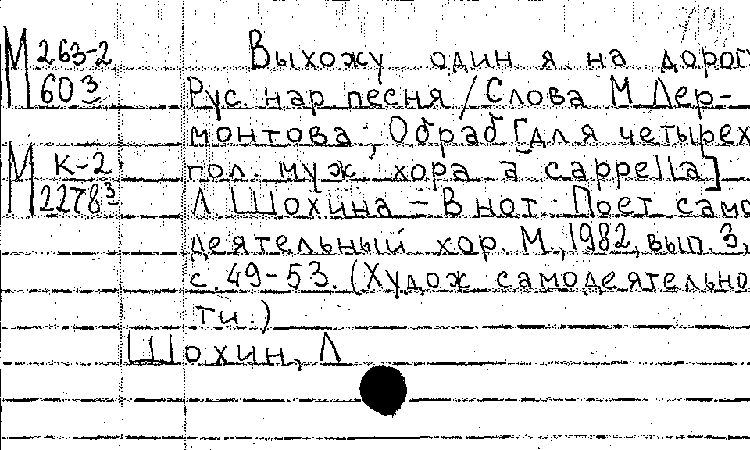 М 263-2
60 3
Выхожу один я на дорог
Рус нар песня / Слова М Лер-
монтова; Обраб [для четырех
М К-2
2278 3
гол. муж хора a cappella]
Л Шохина - В нот: Поет само
деятельный хор. М., 1982, вып. 3,
с. 49-53. (Худож самодеятельно
ти.)
Шохин, Л